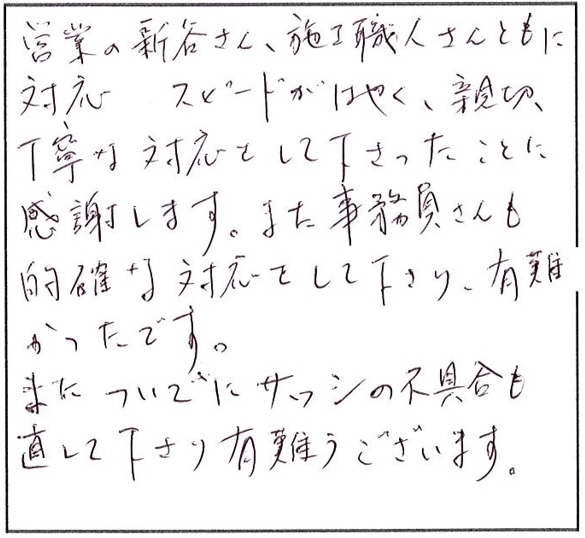 営業の新谷さん、施工職人さんともに
対応 スピードがはやく、親切、
丁寧な対応をして下さったことに
感謝します。また事務員さんも
的確な対応をして下さり、有難
かったです。
またついでにサッシの不具合も
直して下さり有難うございます。